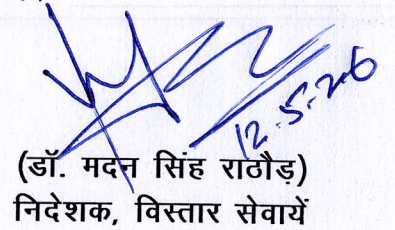 12.5.26
(डॉ. मदन सिंह राठौड़)
निदेशक, विस्तार सेवायें